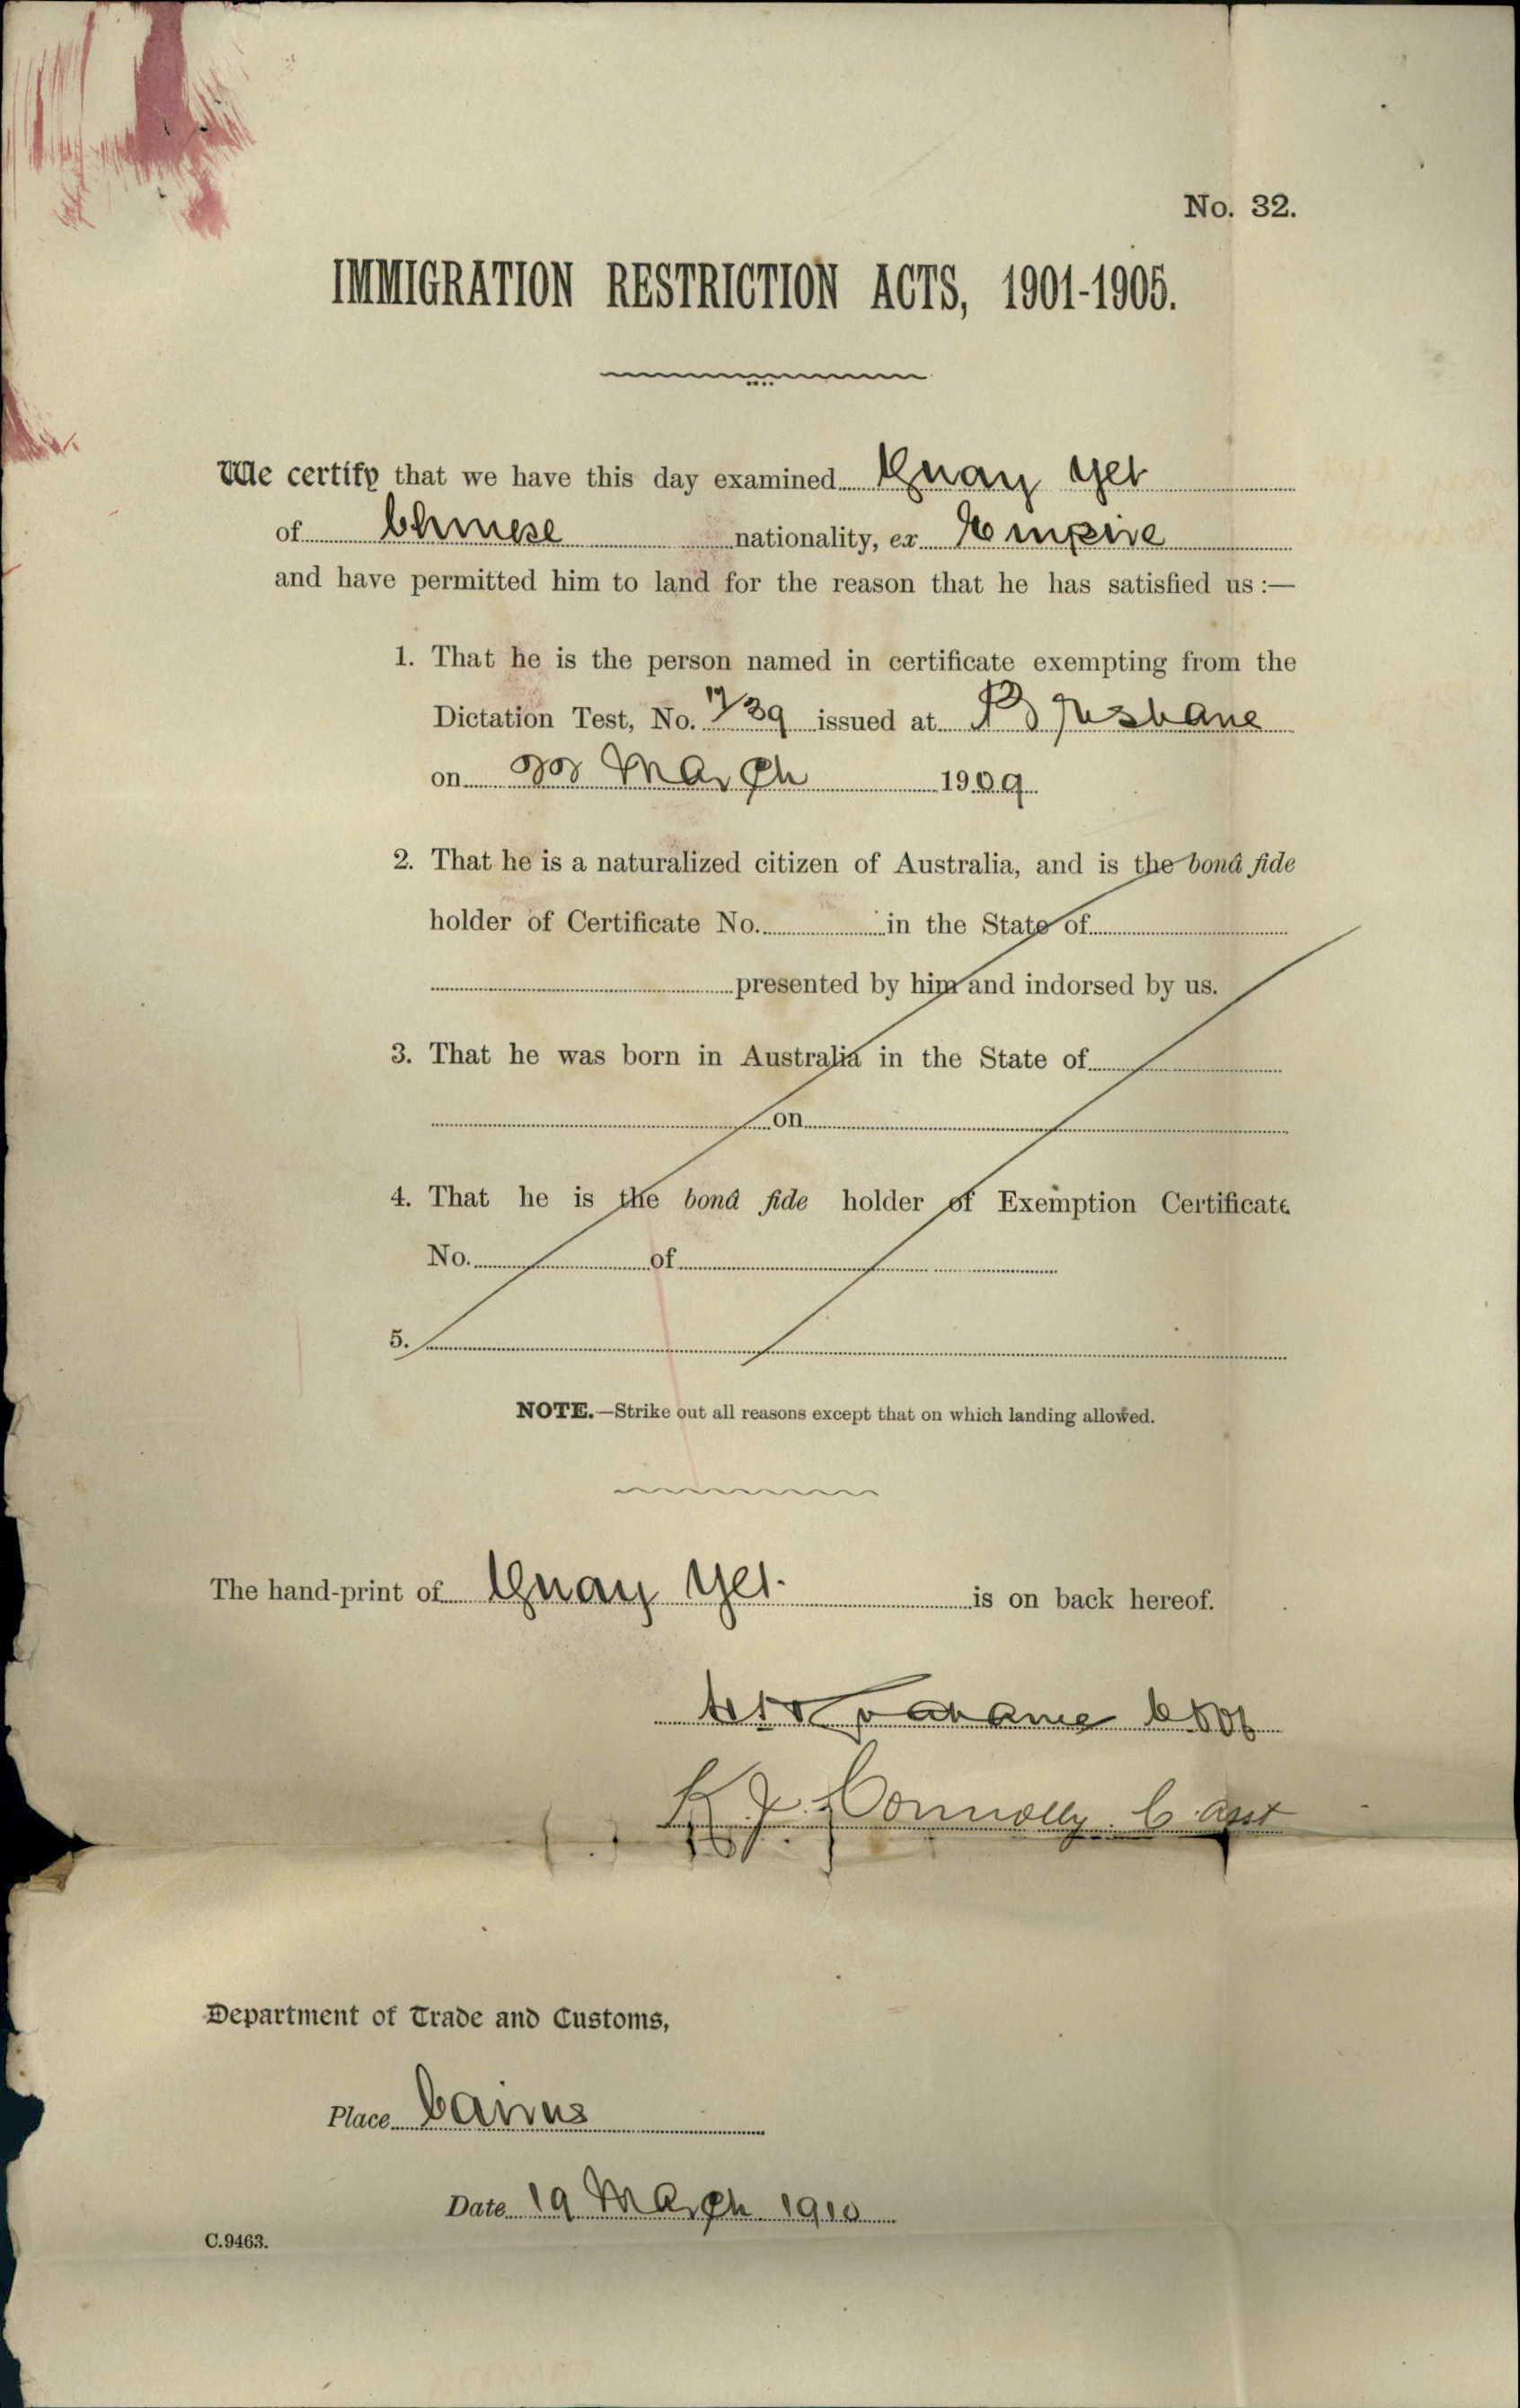 No. 32.
IMMIGRATION RESTRICTION ACTS, 1901-1905.
We certify that we have this day examined Quay Yet
of Chinese nationality, ex Empire
and have permitted him to land for the reason that he has satisfied us :—
1. That he is the person named in certificate exempting from the
Dictation Test, No. 17/39 issued at Brisbane
on March 1909
2. That he is a naturalized citizen of Australia, and is the bonâ fide
holder of Certificate No. in the State of
presented by him and indorsed by us.
3. That he was born in Australia in the State of
on
4. That he is the bonâ fide holder of Exemption Certificate
No. of
5.
NOTE.—Strike out all reasons except that on which landing allowed.
The hand-print of Quay Yet is on back hereof.
Connolly. C. asst
Department of Trade and Customs,
Place Cairns
Date 19 March 1910
C.9463.